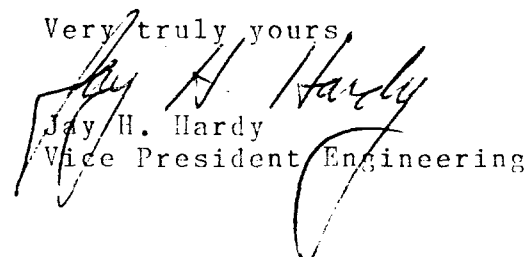 Very truly yours,
Jay H Hardy
Jay H. Hardy
Vice President Engineering